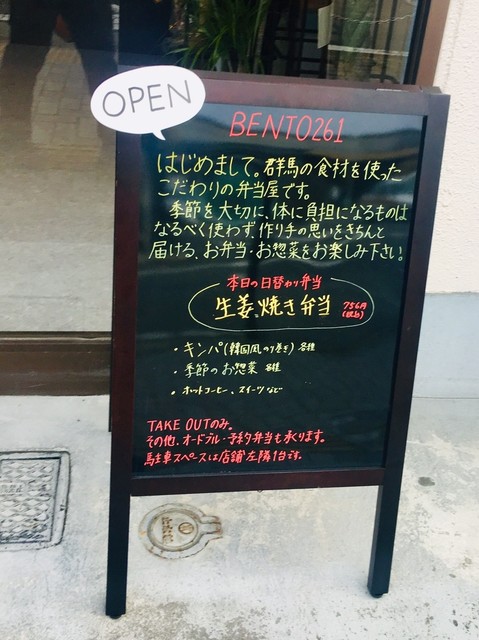 OPEN
BENTO261
はじめまして。群馬の食材を使った
こだわりの弁当屋です。
季節を大切に、体に負担になるものは
なるべく使わず作り手の思いをきちんと
届ける、お弁当・お惣菜をお楽しみ下さい!
本日の日替わり弁当
生姜焼き弁当 756円
(税込)
・キンパ(韓国風のり巻き) 各種
・季節のお惣菜 各種
・ホットコーヒー、スイーツなど
TAKE OUTのみ。
その他、オードブル・予約弁当も承ります。
駐車スペースは店舗左隣1台です。